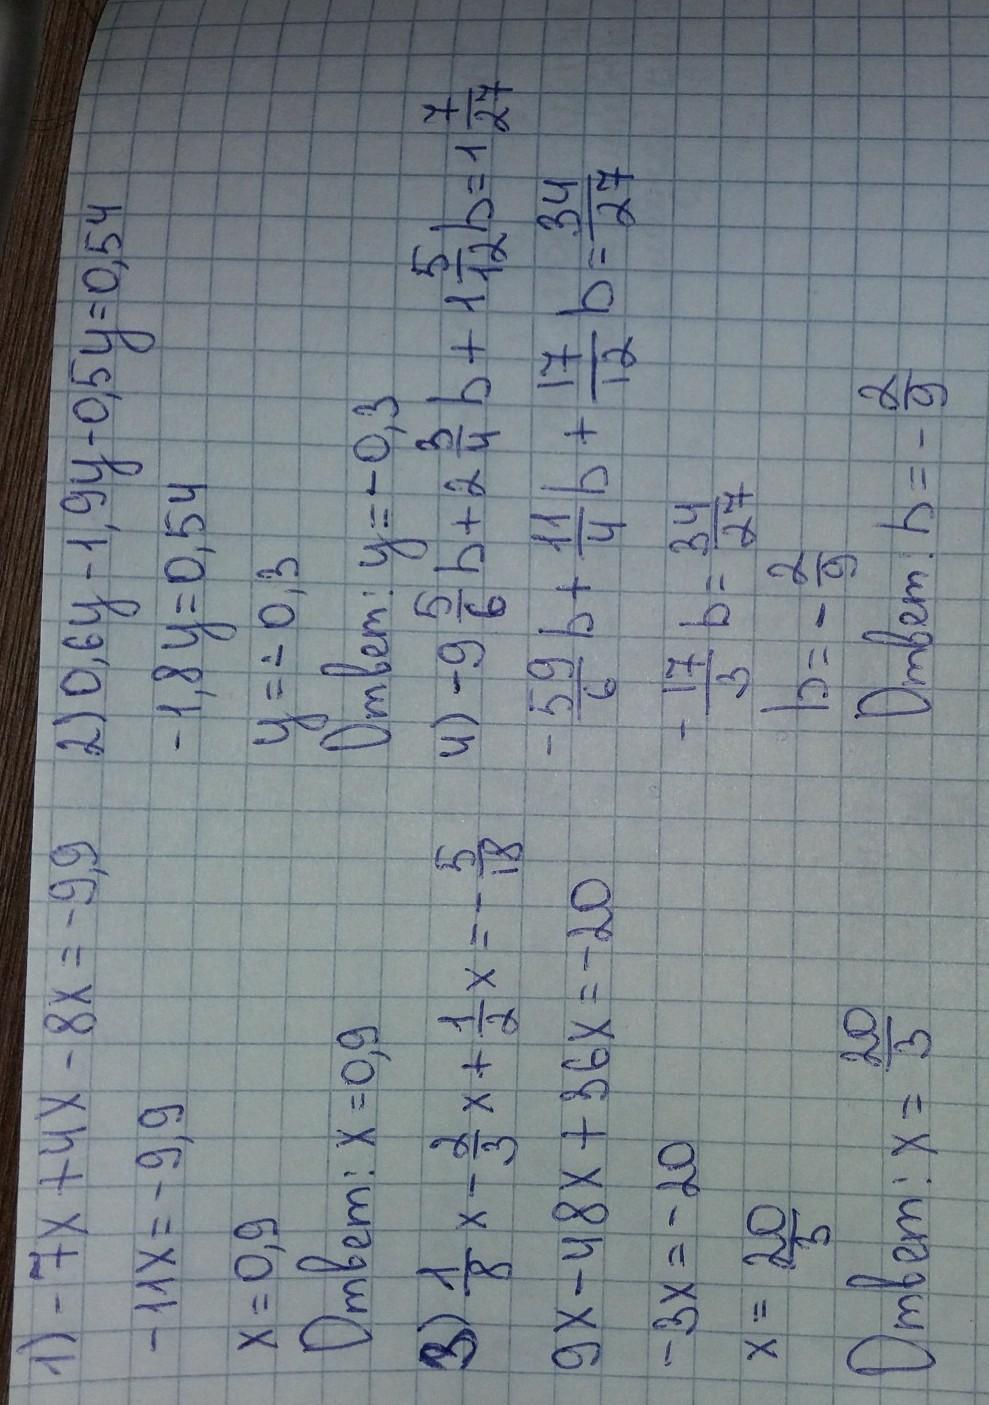 1) -7x + 4x - 8x = -9,9
-11x = -9,9
x = 0,9
Ответ: x = 0,9
2) 0,6y - 1,9y - 0,5y = 0,54
-1,8y = 0,54
y = -0,3
Ответ: y = -0,3
3) 1/8 x - 2/3 x + 1/2 x = - 5/18
9x - 48x + 36x = -20
-3x = -20
x = 20/3
Ответ: x = 20/3
4) -9 5/6 b + 2 3/4 b + 1 5/12 b = 1 7/27
- 59/6 b + 11/4 b + 17/12 b = 34/27
- 17/3 b = 34/27
b = - 2/9
Ответ: b = - 2/9